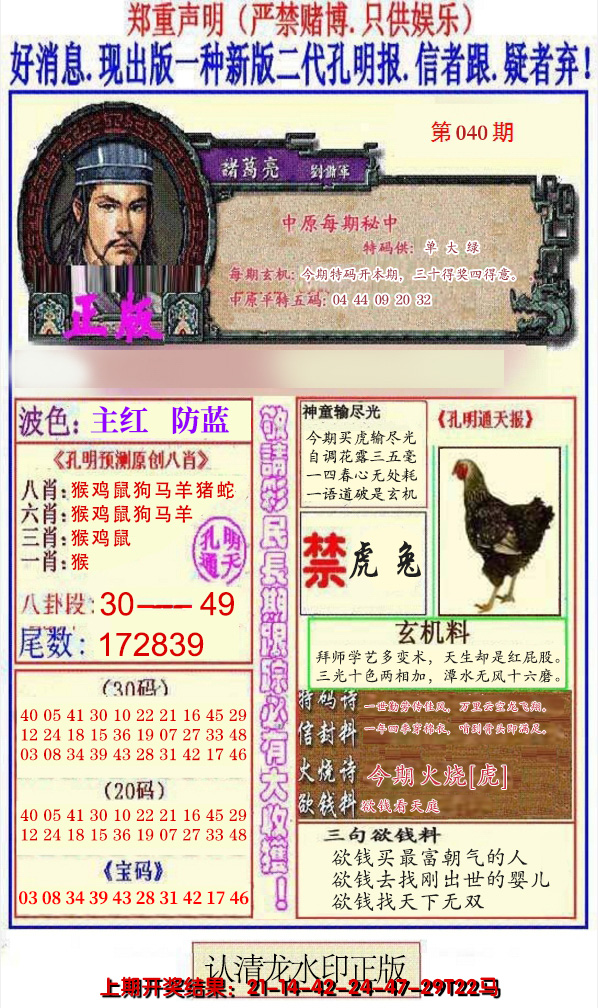 郑重声明（严禁赌博.只供娱乐）
好消息.现出版一种新版二代孔明报.信者跟.疑者弃！
第040期
諸葛亮 劉備軍
中原每期秘中
特码供：单 大 绿
每期玄机：今期特码开本期，三十得奖四得意。
中原平特五码：04 44 09 20 32
正版
波色：主红 防蓝
《孔明预测原创八肖》
八肖：猴鸡鼠狗马羊猪蛇
六肖：猴鸡鼠狗马羊
三肖：猴鸡鼠
一肖：猴
孔明
通天
八卦段：30——49
尾数：172839
（30码）
40 05 41 30 10 22 21 16 45 29
12 24 18 15 36 19 07 27 33 48
03 08 34 39 43 28 31 42 17 46
（20码）
40 05 41 30 10 22 21 16 45 29
12 24 18 15 36 19 07 27 33 48
《宝码》
03 08 34 39 43 28 31 42 17 46
敬請彩民長期跟踪必有大收獲！
神童输尽光
今期买虎输尽光
自调花露三五毫
一四春心无处耗
一语道破是玄机
《孔明通天报》
禁 虎 兔
玄机料
拜师学艺多变术，天生却是红屁股。
三光十色两相加，潭水无风十六磨。
特码诗 一世勤劳传佳风，万里云空龙飞翔。
信封料 一年四季穿棉衣，啃到骨头即满足。
火烧诗 今期火烧[虎]
欲钱料 欲钱看天庭
三句欲钱料
欲钱买最富朝气的人
欲钱去找刚出世的婴儿
欲钱找天下无双
认清龙水印正版
上期开奖结果：21-14-42-24-47-29T22马